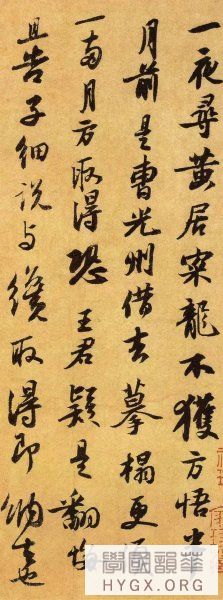 一夜尋黃居寀龍不獲方悟半
月前是曹光州借去摹搨更須
一兩月方取得恐王君疑是翻悔
且告子細說与纔取得即納去也
華韻國學
HYGX.ORG